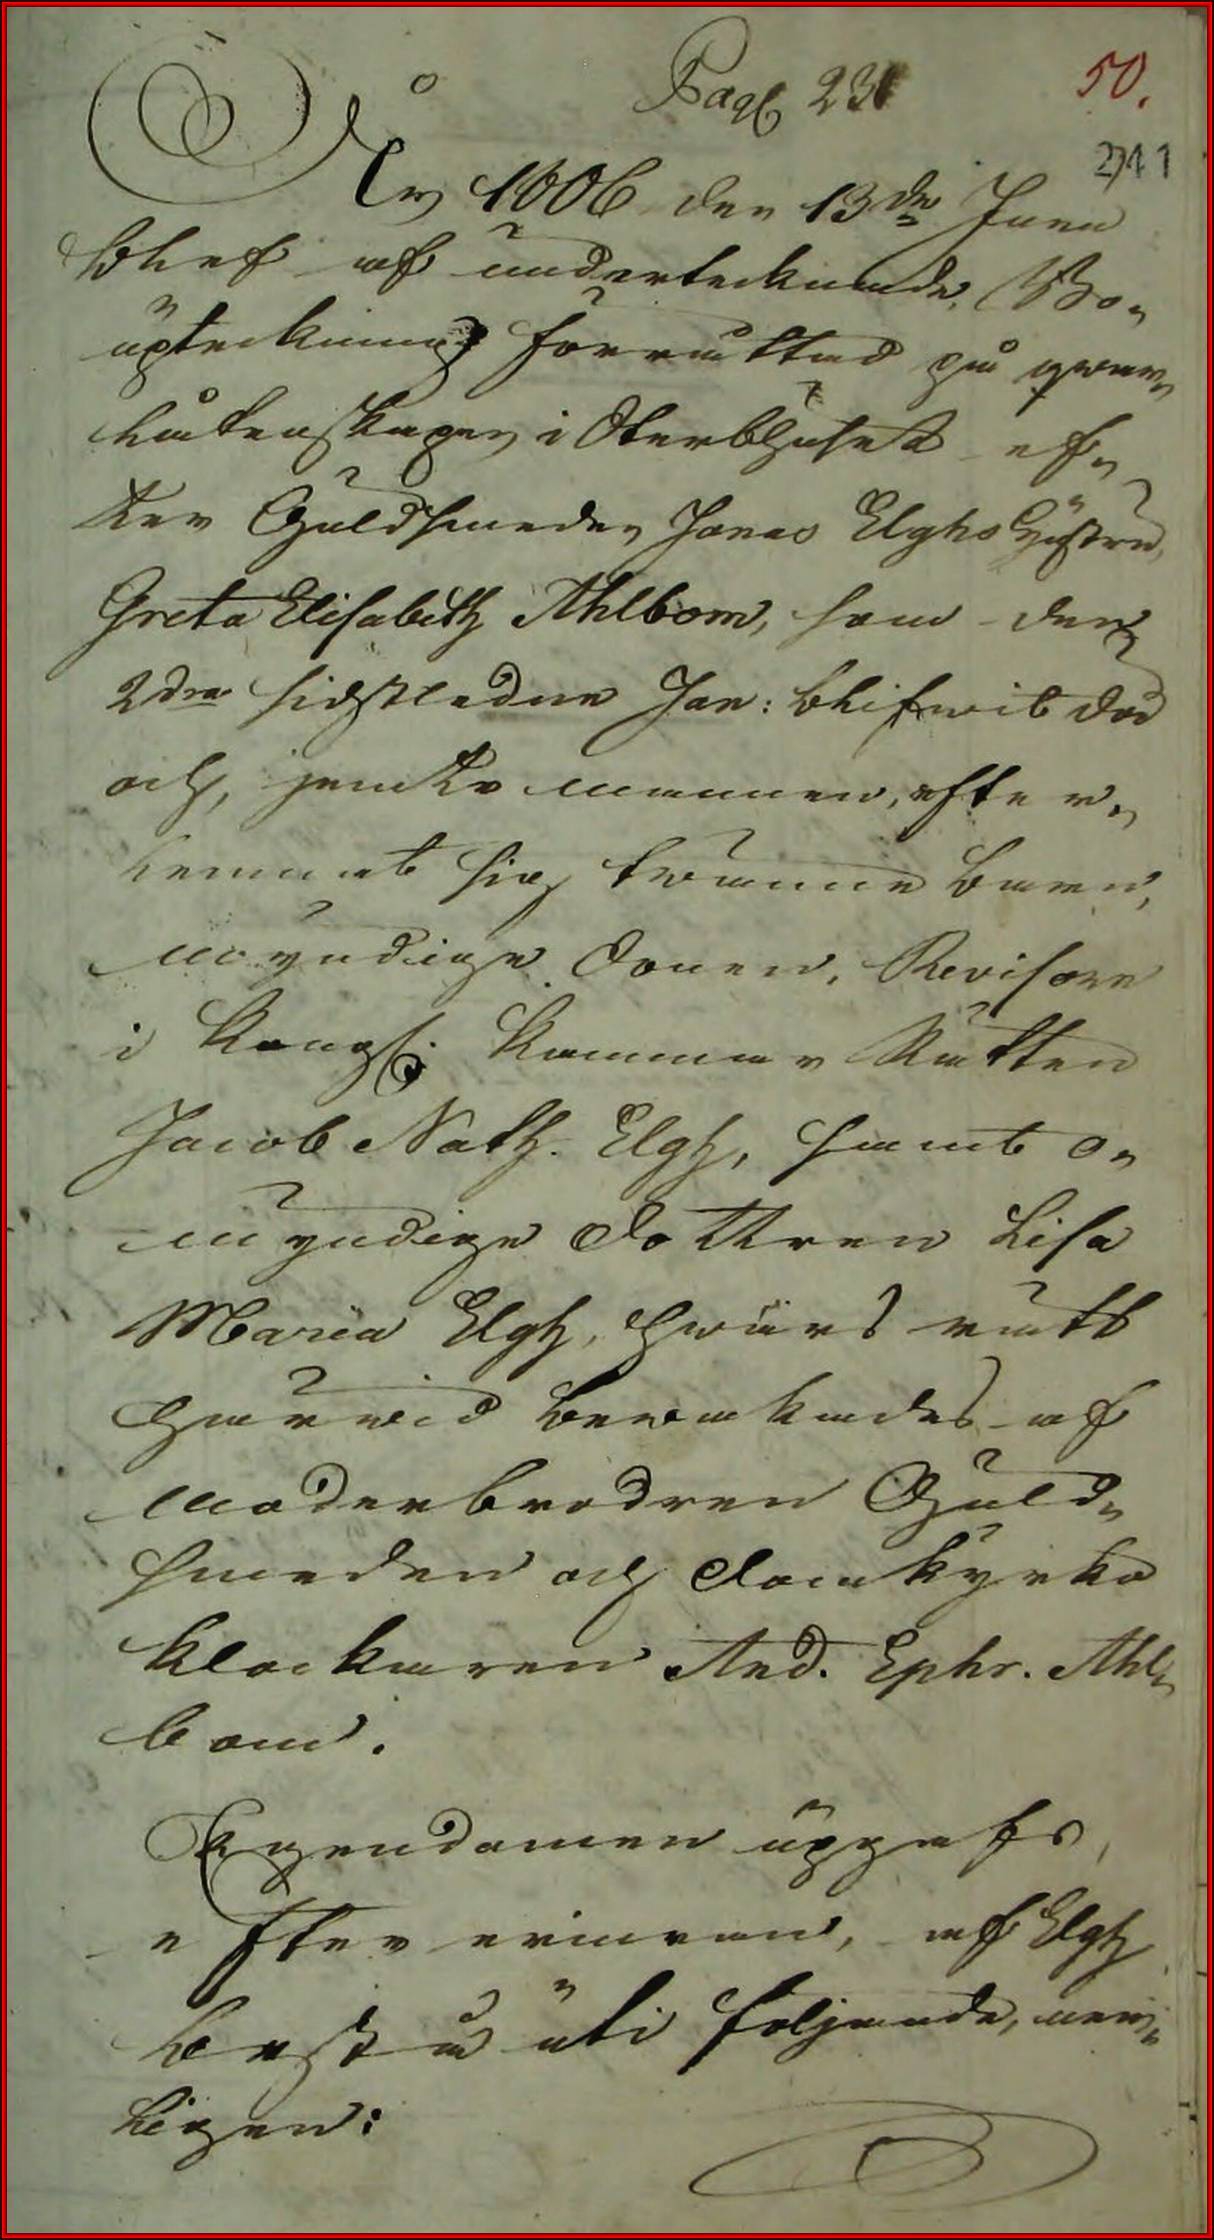 Pag 23
50.
241
År 1806 den 13de Juni
blef af undertecknade, Bo-
upteckning förrättad på qvar-
låtenskapen i Sterbhuset ef-
ter Guldsmeden Jonas Elghs Hustru,
Greta Elisabeth Ahlbom, som den
2dra sidstledne Jan: blifwit död
och, jemte mannen, efter-
lemnat sig twänne barn,
myndige Sonen, Revisorn
i Kongl. Kammar Rätten
Jacob Nath. Elgh, samt o-
myndige dottren Lisa
Maria Elgh, hwars rätt
härwid bewakades af
moderbrodren Guld-
smeden och Domkyrko
klockaren And. Ephr. Ahl-
bom.
Egendomen uppgafs,
efter erinran, af Elgh
bestå uti följande, nem-
ligen: